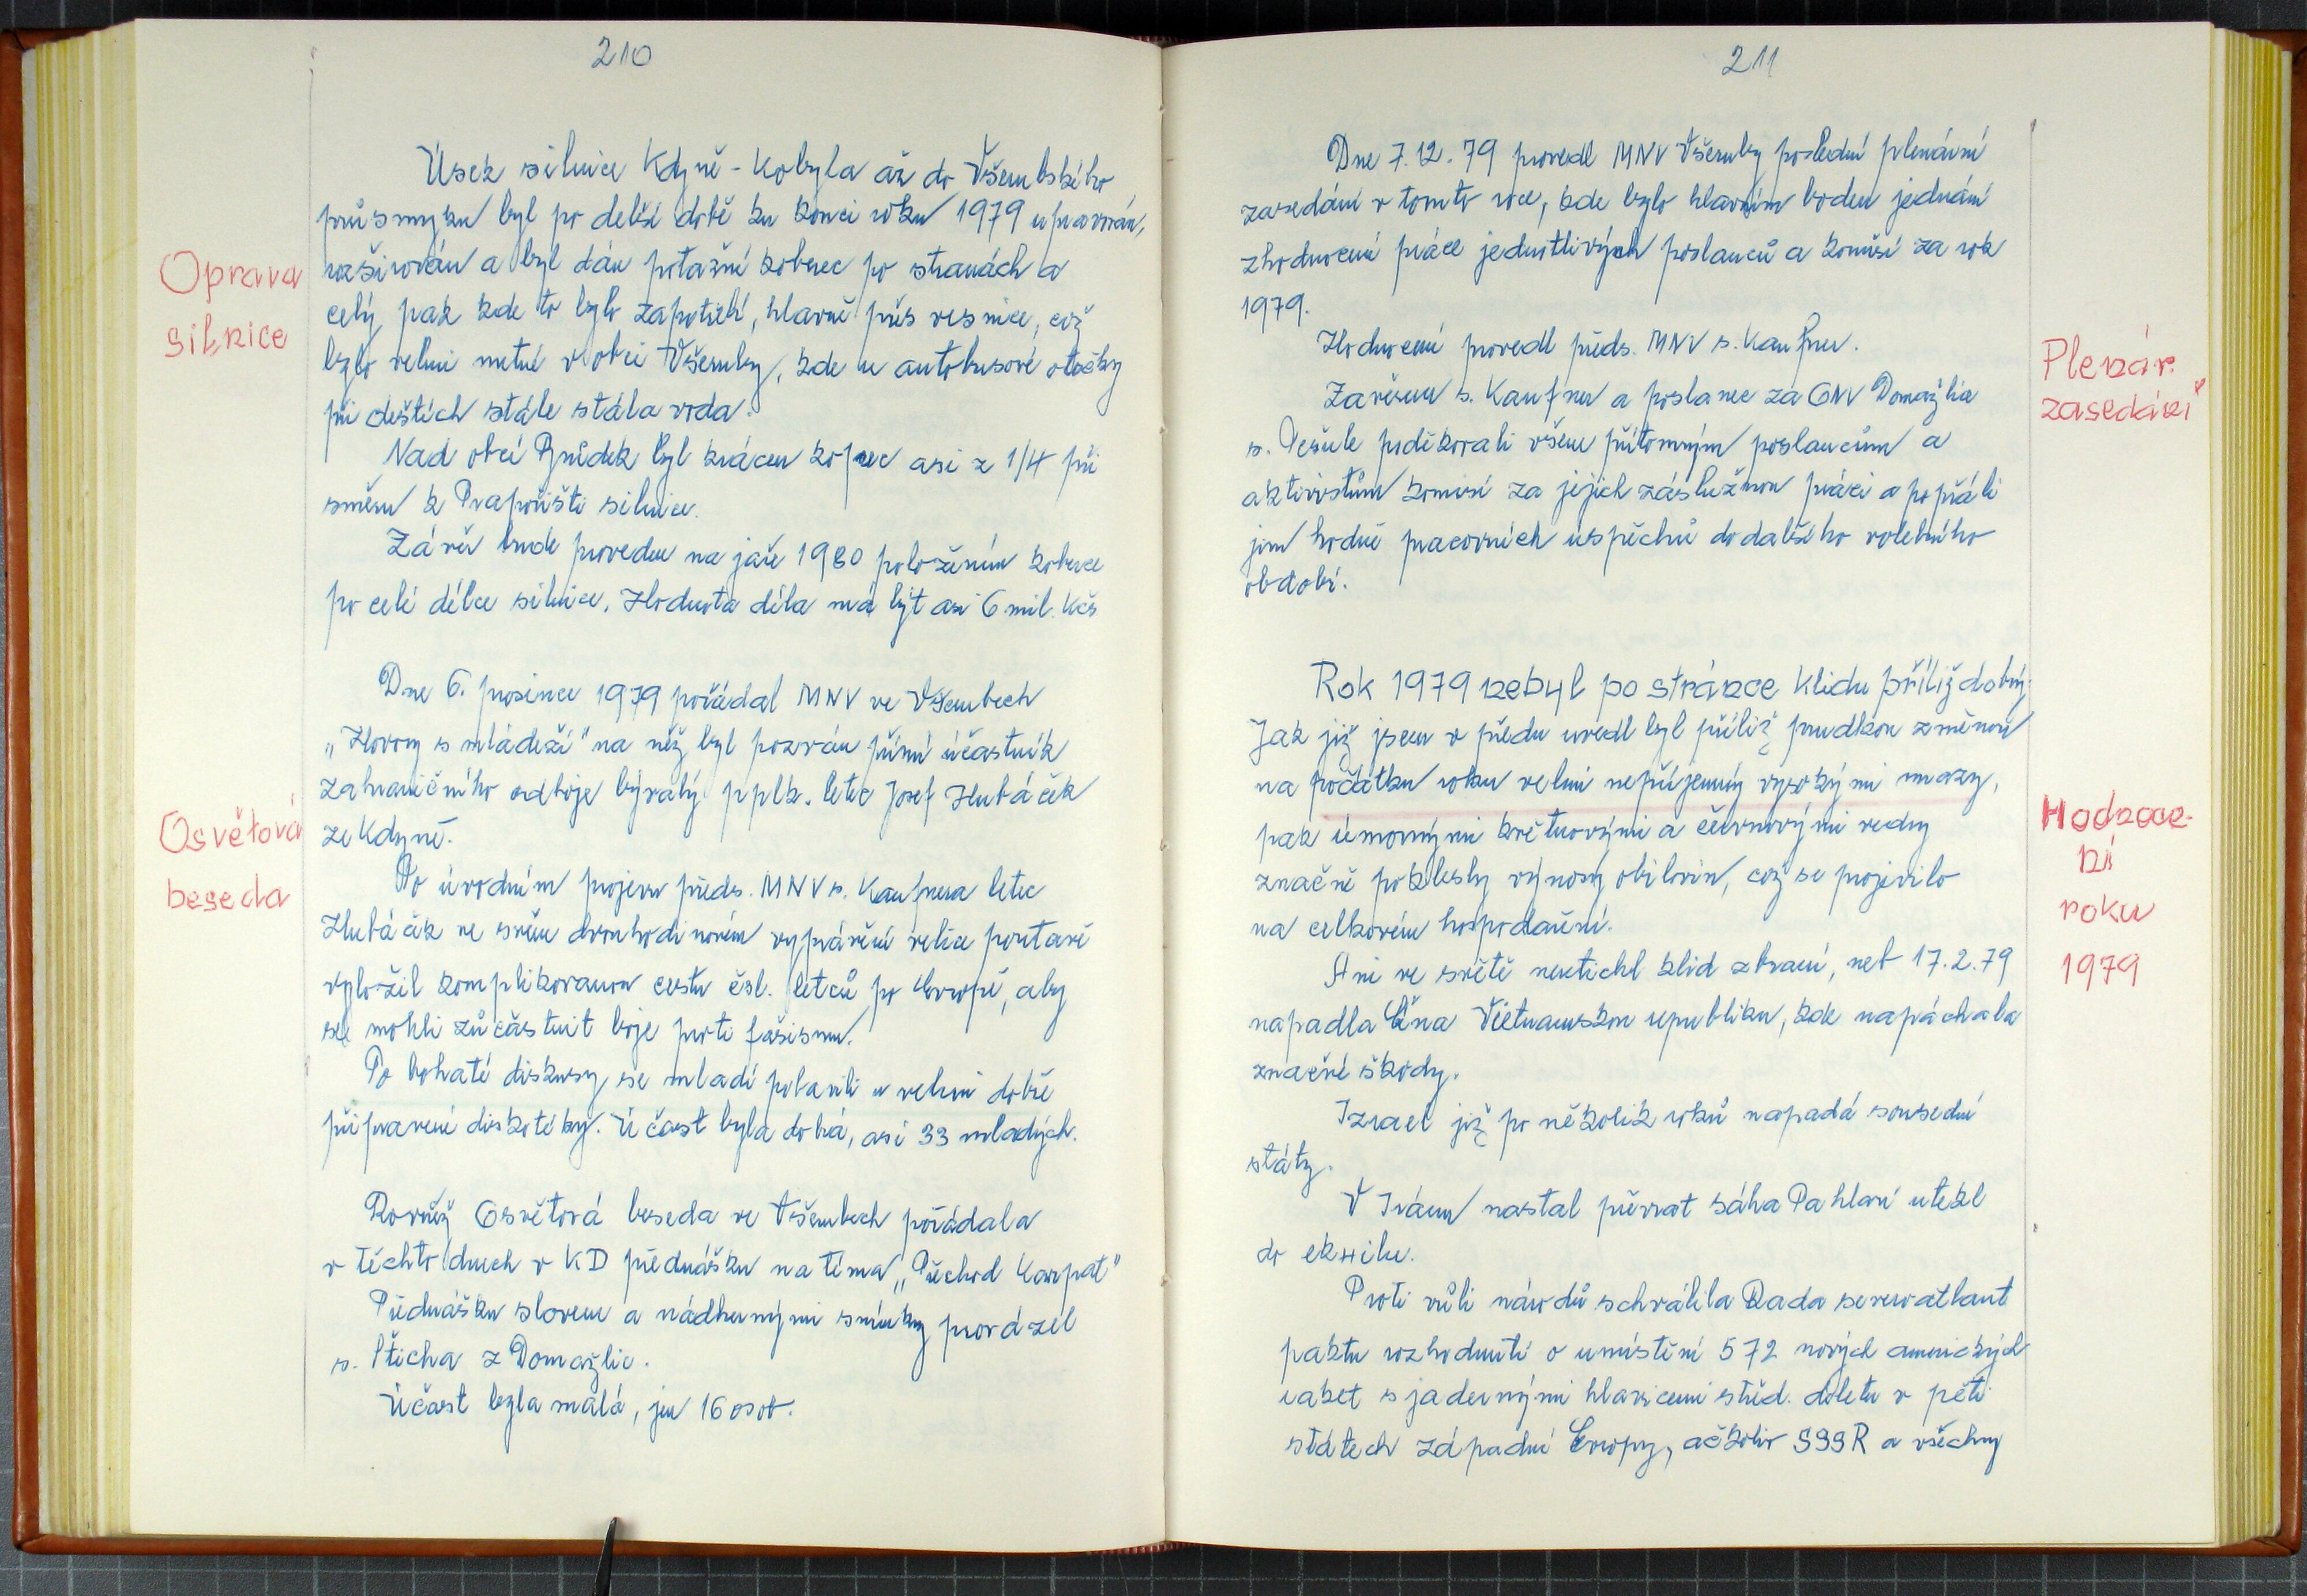 210
Úsek silnice Kdyně - Kobyla až do Všerubského
průsmyku byl po delší době ku konci roku 1979 upravován,
rozširován a byl dán potažní koberec po stranách a
celý pak kde to bylo zapotřebí, hlavně přes vesnice, což
bylo velmi nutné v obci Všeruby, kde u autobusové otočky
při deštích stále stála voda.
Oprava
silnice
Nad obcí Brůdek byl krácen kopec asi z 1/4 při
směru k Prapořišti silnice.
Závěr bude proveden na jaře 1980 položením koberce
po celé délce silnice. Hodnota díla má být asi 6 mil. Kčs
Dne 6. prosince 1979 pořádal MNV ve Všerubech
„Hovory s mládeží" na něž byl pozván přímý účastník
zahraničního odboje bývalý pplk. letec Josef Hubáček
ze Kdyně.
Osvětová
beseda
Po úvodním projevu předs. MNV s. Kaufnera letec
Hubáček ve svém dvouhodinovém vyprávění velice poutavě
vyložil komplikovanou cestu čsl. letců po Evropě, aby
se mohli zúčastnit boje proti fašismu.
Po bohaté diskusy se mladí pobavili u velmi dobře
připravené diskotéky. Účast byla dobrá, asi 33 mladých.
Rovněž Osvětová beseda ve Všerubech pořádala
v těchto dnech v KD přednášku na téma „Přechod Karpat"
Přednášku slovem a nádhernými snímky provázel
s. Šticha z Domažlic.
Účast byla malá, jen 16 osob.
211
Dne 7.12.79 provedl MNV Všeruby poslední plenární
zasedání v tomto roce, kde bylo hlavním bodem jednání
zhodnocení práce jednotlivých poslanců a komisí za rok
1979.
Hodnocení provedl předs. MNV s. Kaufner.
Plenár.
zasedání
Závěrem s. Kaufner a poslanec za ONV Domažlice
s. Pešule poděkovali všem přítomným poslancům a
aktivistům komisí za jejich záslužnou práci a popřáli
jim hodně pracovních úspěchů do dalšího volebního
období.
Rok 1979 nebyl po stránce klidu příliž dobrý.
Jak již jsem v předu uvedl byl příliž prudkou změnou
na počátku roku velmi nepříjemný vysokými mrazy,
pak úmornými květnovými a červnovými vedry
značně poklesly výnosy obilovin, což se projevilo
na celkovém hospodaření.
Hodnoce-
ní
roku
1979
Ani ve světě neutichl klid zbraní, neb 17.2.79
napadla Čína Vietnamskou republiku, kde napáchala
značné škody.
Izrael již po několik roků napadá sousední
státy.
V Iránu nastal převrat šáha Pahlaví utekl
do ekxilu.
Proti vůli národů schválila Rada severoatlant
paktu rozhodnutí o umístění 572 nových amerických
raket s jadernými hlavicemi střed. doletu v pěti
státech západní Evropy, ačkoliv SSSR a všechny